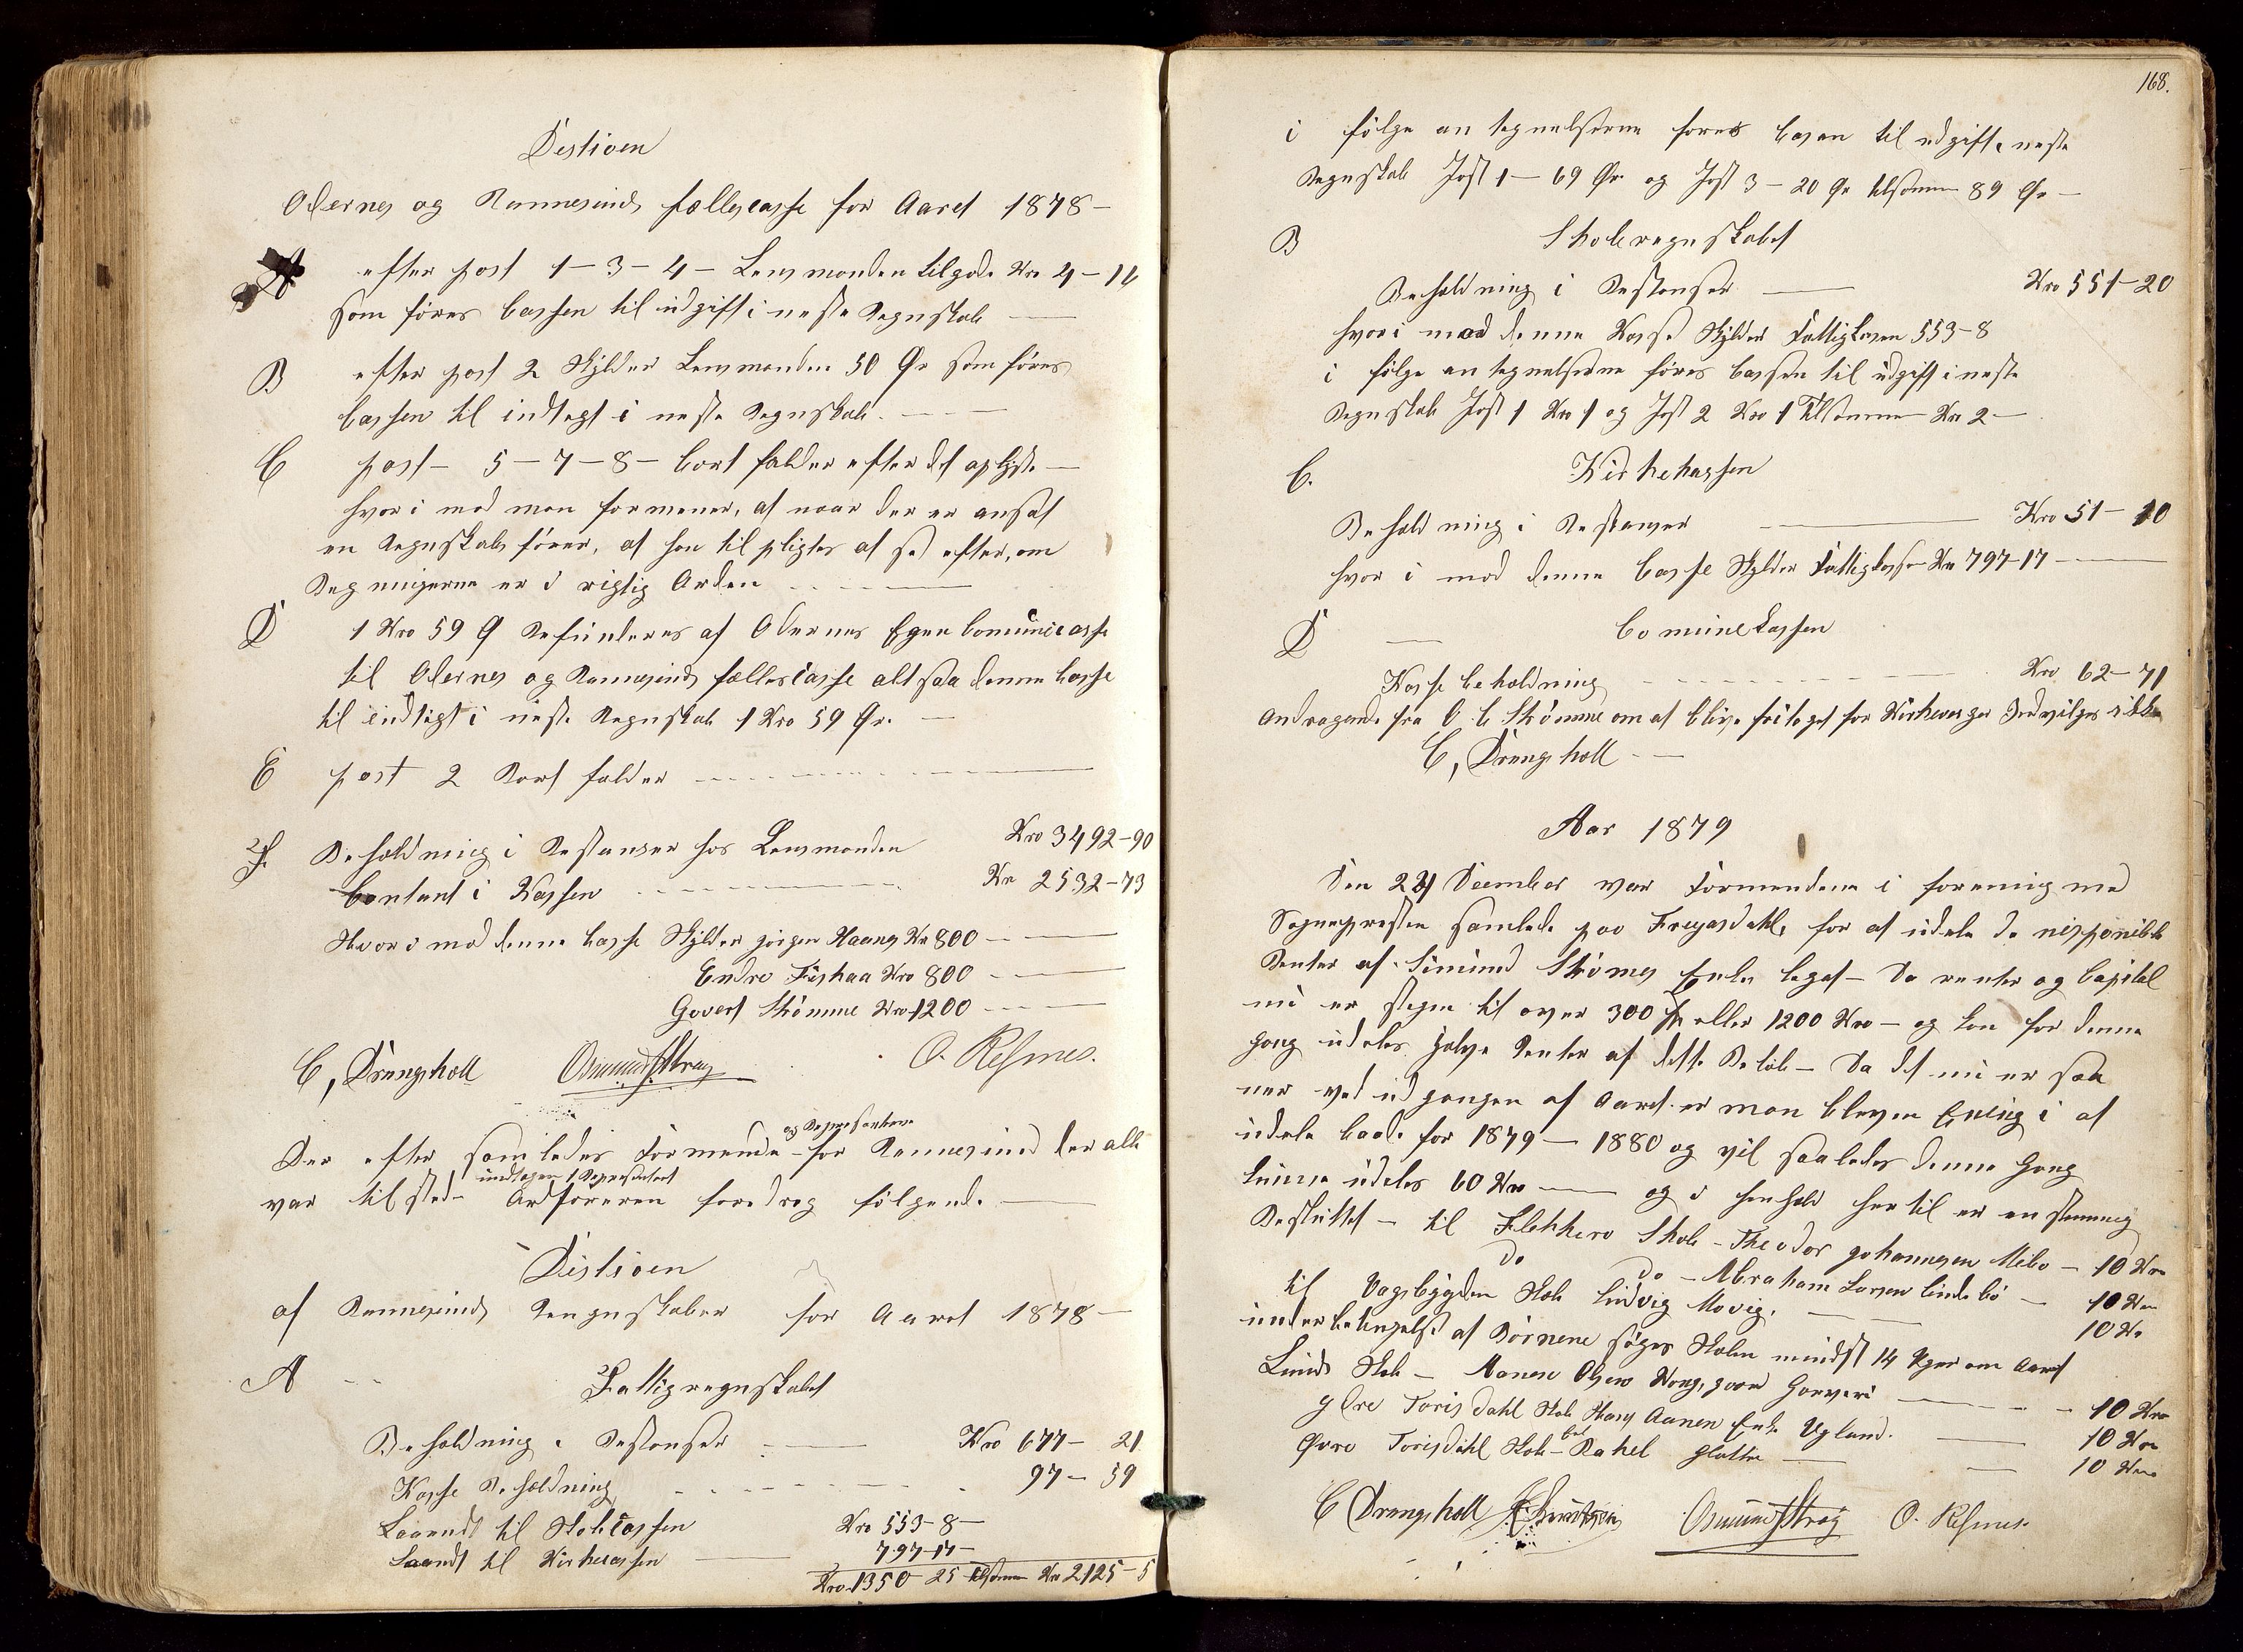 Desisioen
Odernes og Rannesinds fællescasse for Aaret 1878 -
A efter post 1-3-4- Lensmanden tilgode Kro 4-14
som föres Cassen til udgift i neste Regnskab -
B efter post 2 Skÿlder Lensmanden 50 Ør som föres
Cassen til indtegt i neste Regnskab. -
C post - 5-7-8- bort falder efter det oplÿste -
hvor i mod man formener, at naar der er ansat
en Regnskabsförer, at han til pligtes at se efter, om
Regningerne er i rigtig Orden
D 1 Kro 59 Ø Refunderes af Odernes Egen Comunecasse
til Odernes og Rannesinds fællescasse altsaa denne Casse
til indtegt i neste Regnskab 1 Kro 59 Ør. -
E post 2 Bort falder
F. Beholdning i Restanser hos Lensmanden Kro 3492-90
Contant i Kassen Kr 2532-73
Hvor i mod denne Casse Skÿlder Jörgen Haanes Kr 800
Endre Fiskaa Kro 800
Govert Strömme Kro 1200
C, Drangsholt Osmund Straÿ O. Resmes.
Der efter samledes Formende og Repræsentere for Rannesind der alle
var til sted - undtagen 1 Representant Ordföreren foredrog fölgende
Disisioen
af Rannesinds Rengnskaber for Aaret 1878 -
A Fattigregnskabet
Beholdning i Restanser Kro 677- 21
Kasse Beholdning 97- 59
Laandt til Skolecassen Kro 553-8-
Laandt til Kirkecassen 797-17-
Kro 1350- 25 tilsammen Kr 2125-5
168.
i fölge an tegnelserne fores Casen til udgift i neste
Regnskab Post 1- 69 Ør og Post 3- 20 Ør tilsammen 89 Ør -
B Skoleregnskabet
Beholdning i Restanser Kro 551-20
hvor i mod denne Kasse Skÿlder Fattigkasen 553-8
i fölge an tegnelserne föres Cassen til udgift i neste
Regnskab Post 1 Kro 1 og Post 2 Kro 1 Tilsammen Kr 2 -
C. Kirkekassen
Beholdning i Restanser Kro 51- 10
hvor i mod denne Casse Skÿlder Fattigkasse Kr 797-17
D Comunekassen
Kasse beholdning Kro 62-71
Andragende fra O. C. Strömme om at blive fritaget for Kirkeverger Indvilges ikke
C, Drangsholt
Aar 1879
Den 24 December var Formendene i forening med
Sognepresten samlede paa Fregasdahl, for at udele de disponible
Renter af Simund Strömes Enkes legat - Da renter og Capital
nu er stegen til over 300 Spd eller 1200 Kro - og kan for denne
Gang udeles halve Renter af dette Belöb - Da det nu er saa
ner ved udgangen af Aaret er man bleven Enig i at
udele baade for 1879 - 1880 og vil saaledes denne Gang
kunne udeles 60 Kro - og i henhold her til er en stemmig
Besluttet - til Flekkerö Skole - Theodor Johannesen Mebo - 10 Kro
do do - Abraham Larsen Lindebö - 10 Kro
til Vagsbÿgden Skole Ludvig Movig. 10 Kr
under betingelse af Börnene söger Skolen mindst 14 Uger om Aaret
Lunds Skole - Aanen Olsen Kongsgaard Garveri 10 Kro
Ydre Torisdahl Skole Hans Aanen Enke Ugland. 10 Kro
Øvre Torisdahl Skole - Rakel Slotte 10 Kro
C Drangsholt Osmund Straÿ O. Resmes.